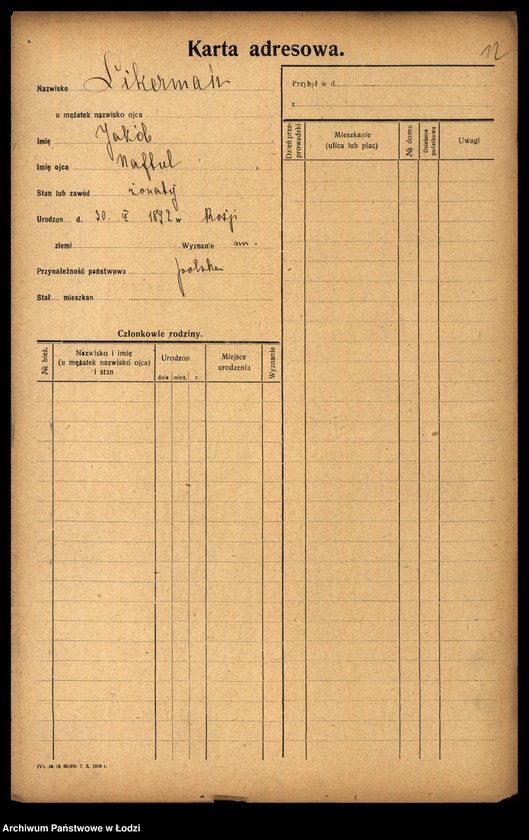 Karta adresowa.
12
Nazwisko Likerman
u mężatek nazwisko ojca
Imię Jakób
Imię ojca Naftul
Stan lub zawód żonaty
Urodzon d. 30. 1892 w Rosji
ziemi Wyznanie m.
Przynależność państwowa polska
Stał mieszkan
Członkowie rodziny.
№ bież. Nazwisko i imię (u mężatek nazwisko ojca) i stan Urodzon dnia mies. r. Miejsce urodzenia Wyznanie
Przybył w d.
z
Dzień przeprowadzki Mieszkanie (ulica lub plac) № domu Dzielnica podatkowa Uwagi
7. X. 1919 r.
Archiwum Państwowe w Łodzi